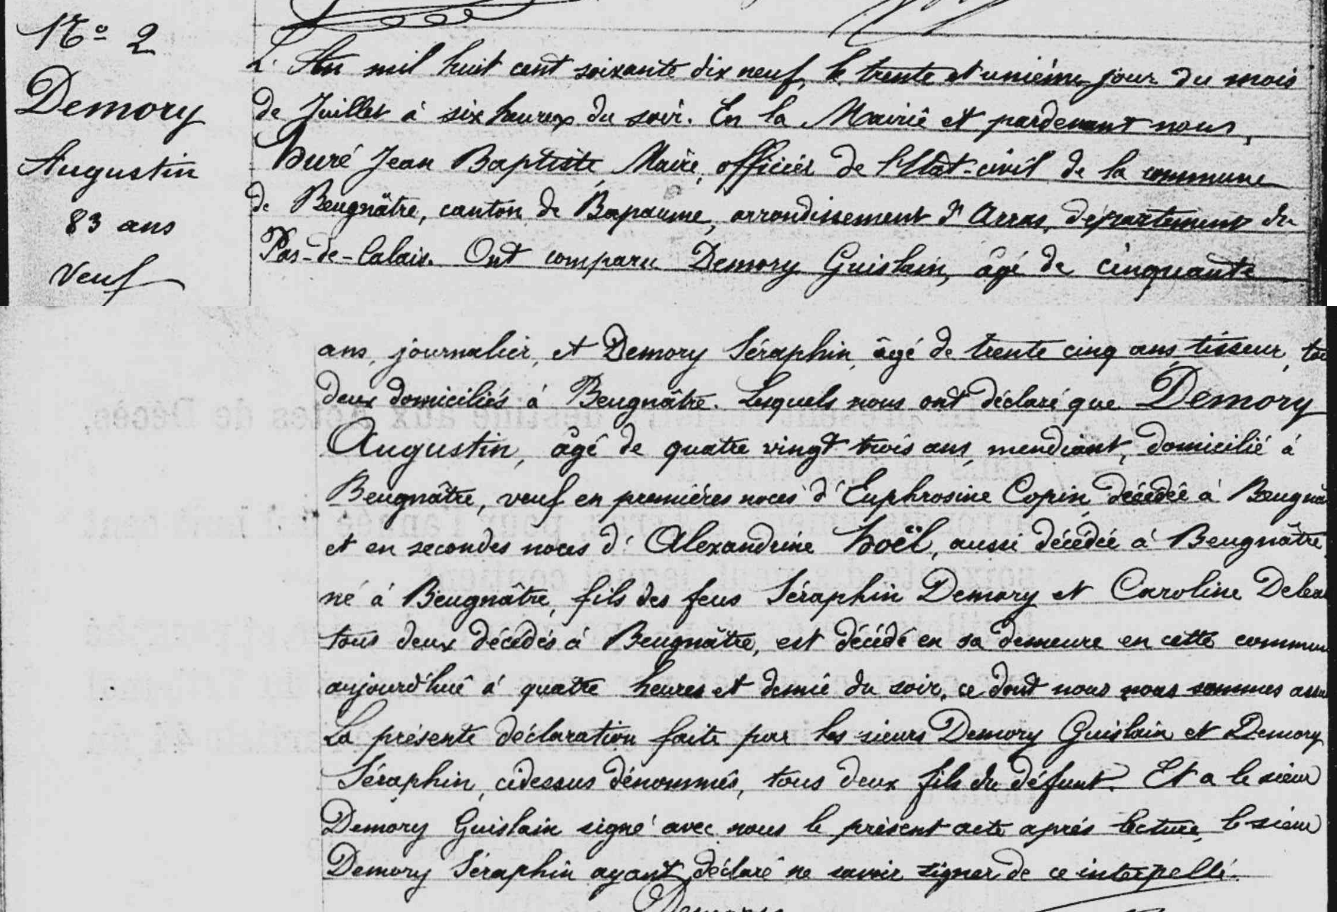 N° 2
Demory
Augustin
83 ans
Veuf
L'An mil huit cent soixante dix neuf, le trente et unième jour du mois
de Juillet à six heures du soir. En la Mairie et pardevant nous,
Duré Jean Baptiste Maire, officier de l'Etat-civil de la commune
de Beugnâtre, canton de Bapaume, arrondissement d'Arras, département du
Pas-de-Calais. Ont comparu Demory Guislain, âgé de cinquante
ans, journalier, et Demory Séraphin, âgé de trente cinq ans, tisseur,
deux domiciliés à Beugnâtre. Lesquels nous ont déclaré que Demory
Augustin, âgé de quatre vingt trois ans, mendiant, domicilié à
Beugnâtre, veuf en premières noces d'Euphrosine Copin, décédée à
et en secondes noces d'Alexandrine Hoël, aussi décédée à Beugnâtre
né à Beugnâtre, fils des feus Séraphin Demory et Caroline
tous deux décédés à Beugnâtre, est décédé en sa demeure en cette
aujourd'hui à quatre heures et demie du soir, ce dont nous nous sommes
La présente déclaration faite par les sieurs Demory Guislain et Demory
Séraphin, cidessus dénommés, tous deux fils du défunt. Et a le sieur
Demory Guislain signé avec nous le présent acte après lecture, le sieur
Demory Séraphin ayant déclaré ne savoir signer de ce interpellé.